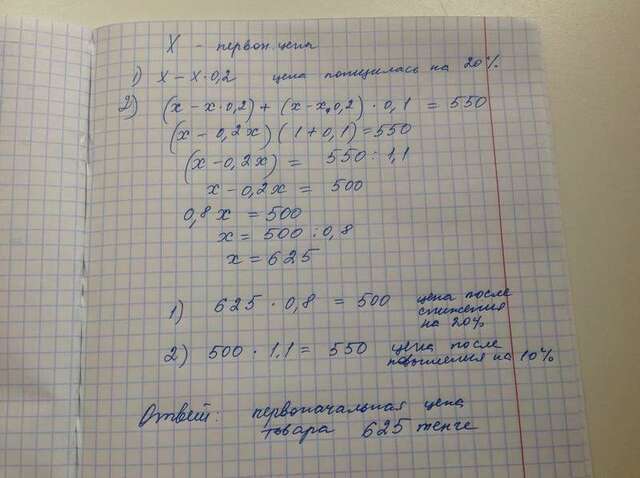 X - первон. цена
1) x - x·0,2 цена понизилась на 20%
2) (x - x·0,2) + (x - x·0,2) · 0,1 = 550
(x - 0,2x) (1 + 0,1) = 550
(x - 0,2x) = 550 : 1,1
x - 0,2x = 500
0,8x = 500
x = 500 : 0,8
x = 625
1) 625 · 0,8 = 500 цена после
снижения
на 20%
2) 500 · 1,1 = 550 цена после
повышения на 10%
Ответ: первоначальная цена
товара 625 тенге